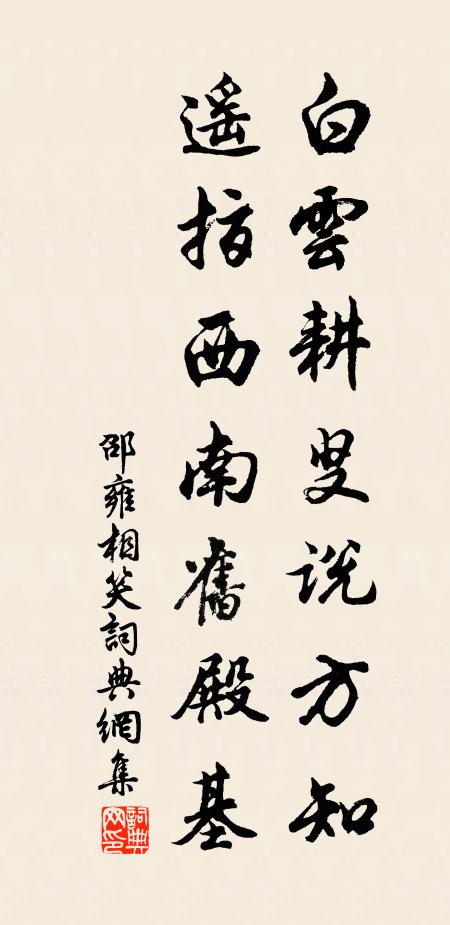 白雲耕叟説方知
遥指西南舊殿基
邵雍相笑詞典網集
詞典网印